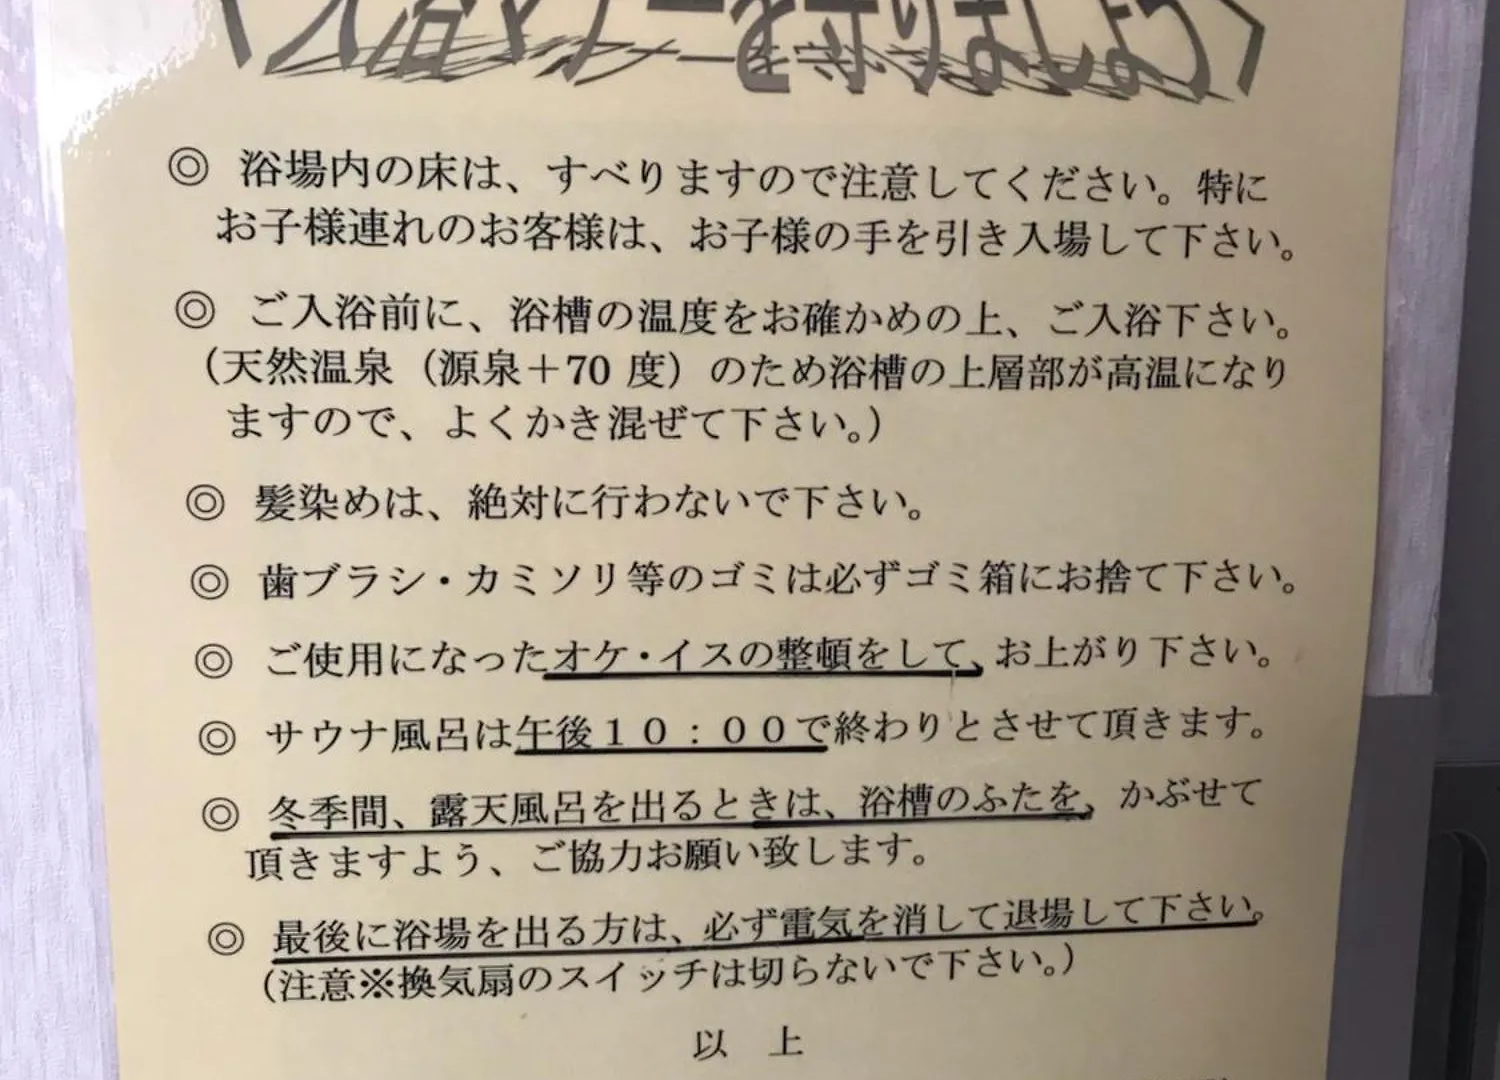 〈入浴マナーを守りましょう〉
◎ 浴場内の床は、すべりますので注意してください。特に
お子様連れのお客様は、お子様の手を引き入場して下さい。
◎ ご入浴前に、浴槽の温度をお確かめの上、ご入浴下さい。
（天然温泉（源泉＋70 度）のため浴槽の上層部が高温になり
ますので、よくかき混ぜて下さい。）
◎ 髪染めは、絶対に行わないで下さい。
◎ 歯ブラシ・カミソリ等のゴミは必ずゴミ箱にお捨て下さい。
◎ ご使用になったオケ・イスの整頓をして、お上がり下さい。
◎ サウナ風呂は午後１０：００で終わりとさせて頂きます。
◎ 冬季間、露天風呂を出るときは、浴槽のふたを、かぶせて
頂きますよう、ご協力お願い致します。
◎ 最後に浴場を出る方は、必ず電気を消して退場して下さい。
（注意※換気扇のスイッチは切らないで下さい。）
以 上